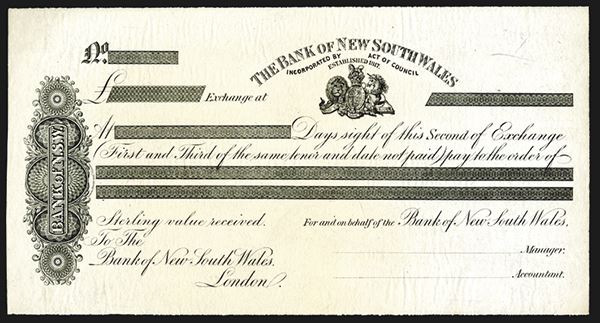 No.
THE BANK OF NEW SOUTH WALES
INCORPORATED BY ACT OF COUNCIL
ESTABLISHED 1817.
£ Exchange at
At Days sight of this Second of Exchange
(First and Third of the same tenor and date not paid) pay to the order of
BANK OF N.S.W.
Sterling value received. For and on behalf of the Bank of New South Wales,
To The
Bank of New South Wales. Manager.
London. Accountant.